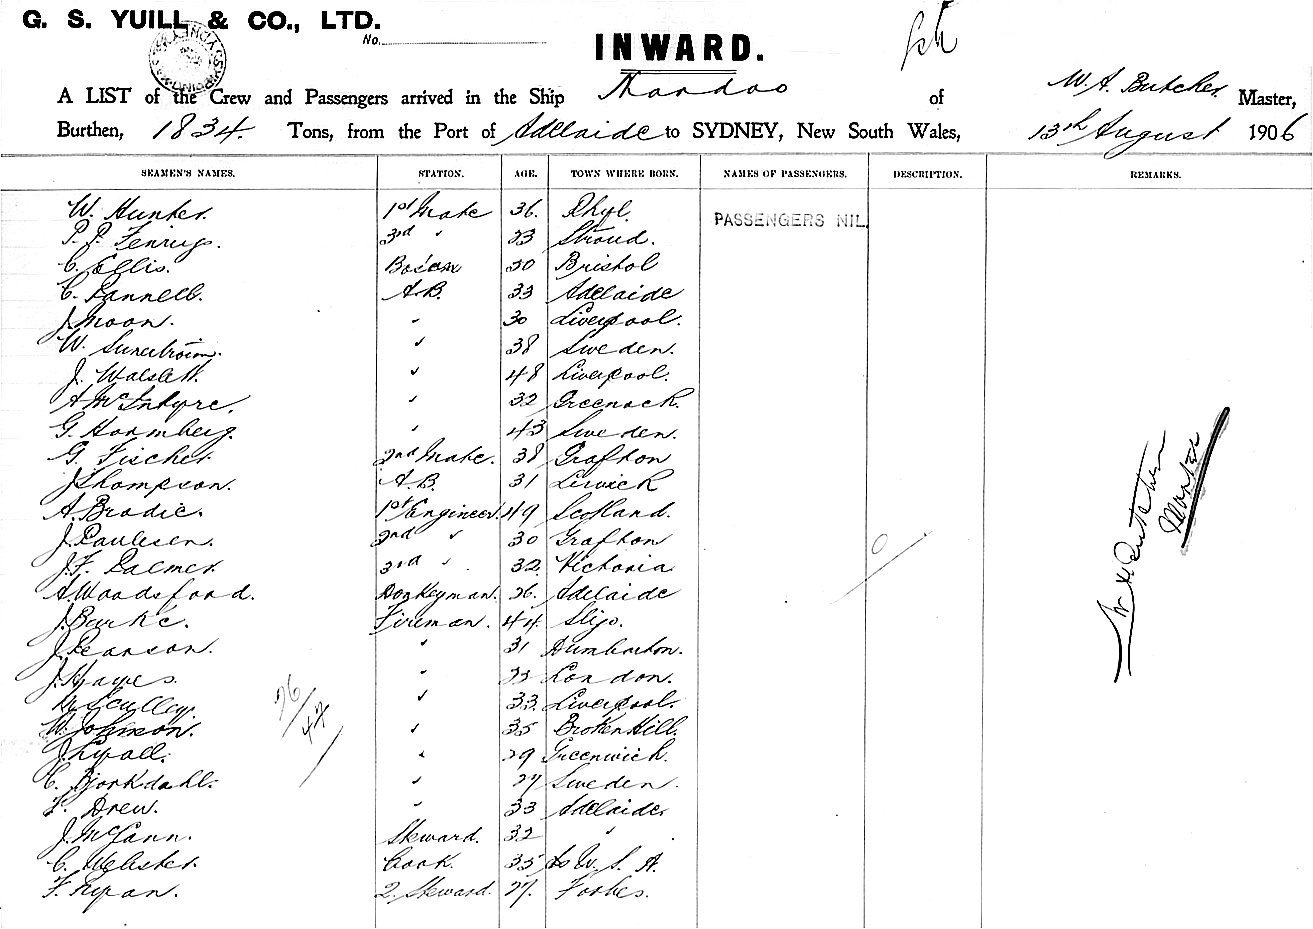 G. S. YUILL & CO., LTD.
No.
INWARD.
A LIST of the Crew and Passengers arrived in the Ship Nardoo of W. A. Butcher Master,
Burthen, 1834 Tons, from the Port of Adelaide to SYDNEY, New South Wales, 13th August 1906
SEAMEN'S NAMES. STATION. AGE. TOWN WHERE BORN. NAMES OF PASSENGERS. DESCRIPTION. REMARKS.
W. Hunter. 1st Mate 36. Rhyl. PASSENGERS NIL.
P. P. 3rd " 23 Stroud.
C. Ellis. Bosun 30 Bristol
C. Pannell. A.B. 33 Adelaide
J. Moon. " 30 Liverpool.
W. " 38 Sweden.
J. " 48 Liverpool.
A McIntyre. " 32 Greenock.
G. Hormberg. " 43 Sweden.
G. Fischer 2nd Mate. 38 Grafton
J Thompson. A.B. 31 Lerwick
A. Brodie. 1st Engineer. 49 Scotland.
J. Paulesen. 2nd " 30 Grafton
J. F. Palmer. 3rd " 32. Victoria
A. Woodsford. Donkeyman. 26. Adelaide
J. Burke. Fireman. 44. Sligo.
J. Pearson. " 31 Dumbarton.
J. Hayes. " 23 London.
Sculley. " 33. Liverpool.
W. Johnson. " 35 Broken Hill.
J. Lyall. " 29 Greenwich.
C. Bjorkdahl. " 27 Sweden.
F. Drew. " 33 Adelaide.
J. McCann. Steward. 32 "
C. Webster. Cook. 35 W. S. A.
F. Ryan. 2. Steward. 27. Forbes.
26/47
Butcher
Master